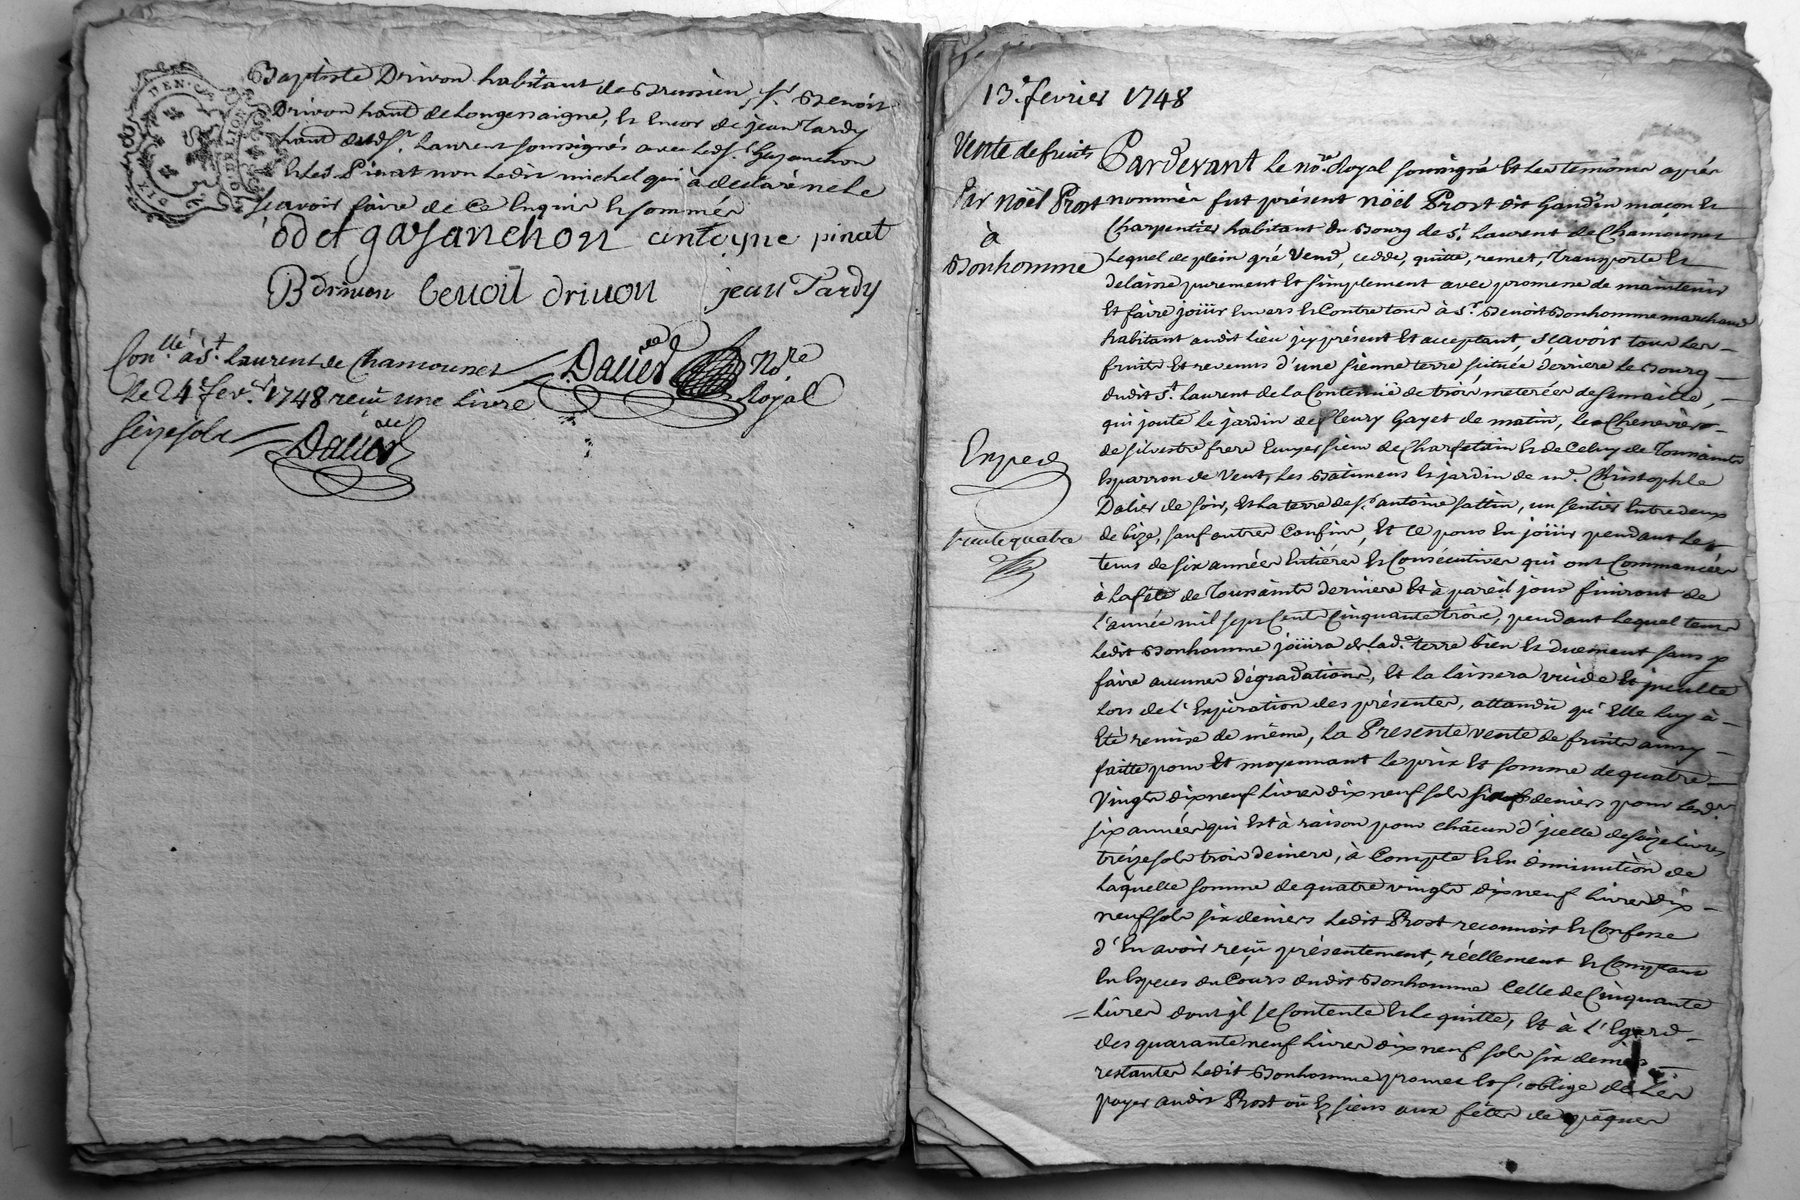 Baptiste Drivon habitant de Brussieu, sr. Benoit
Drivon habt. de Longessaigne, et encor de jean Tardy
habt. dudt. st. Laurent soussignés avec ledt. sr. Gajanchon
et led. Pinat non ledit michel qui à declaré ne le
sçavoir faire de ce enquis et sommés
odet gajanchon antoyne pinat
B drivon benoit drivon jean Tardy
Con.llé à st. Laurent de Chamousset
le 24e. fev.er 1748 reçu une livre
seize sols
Dalier
Dalier Nore
Royal
13e. fevrier 1748
Vente de fruits
Par noël Prost
à
Bonhomme
Exped
vente quatre
Pardevant le nore. Royal soussigné et les temoins après
nommés fut présent noël Prost dit Gandin maçon et
Charpentier habitant du Bourg de st. Laurent de Chamousset
Lequel de plein gré Vend, cedde, quitte, remet, Transporte et
delaisse purement et simplement avec promesse de maintenir
et faire joüir envers et Contre tous à sr. Benoit Bonhomme marchand
habitant audit lieu jcy présent et acceptant, sçavoir tous les
fruits et revenus d'une sienne terre située derriere le Bourg
dudit st. Laurent de la Contenüe de trois meterées de semaille,
qui joute le jardin de fleury Gayet de matin, les Chenevières
de silvestre frere Ecuyer sieur de Charfetain et de Celuy de Toussaints
Esparron de Vent, les Batimens et jardin de mr. Christophle
Dalier de soir, et la terre de sr. antoine sattin, un sentier entredeux
de bize, sauf autres Confins, et ce pour en joüir pendant le
tems de six années entiéres et Consécutives qui ont Commencées
à la féte de Toussaints derniere et à pareil jour finiront de
l'année mil sept Cent Cinquante trois, pendant lequel tems
ledit Bonhomme joüira de lade. terre bien et duement sans y
faire aucunes dégradations, et la laissera vuide et jnculte
lors de l'Expiration des présentes, attandu qu'Elle luy à
été remise de méme, la Presente vente de fruits ainsy
faitte pour et moyennant le prix et somme de quatre
Vingts dix neuf livres dix neuf sols six deniers pour lesd.
six années qui est à raison pour châcun d'jcelle de seize livres
treize sols trois deniers, à Compte et en diminution de
laquelle somme de quatre vingts dix neuf livres dix
neuf sols six deniers ledit Prost reconnoit et Confesse
d'en avoir reçu présentement, réellement et Comptant
en Especes du Cours dudit Bonhomme Celle de Cinquante
livres dont jl se Contente et le quitte, et à l'Egard
des quarante neuf livres dix neuf sols six deniers
restantes ledit Bonhomme promet et s'oblige de les
payer audit Prost où Es siens aux fétes de pâques